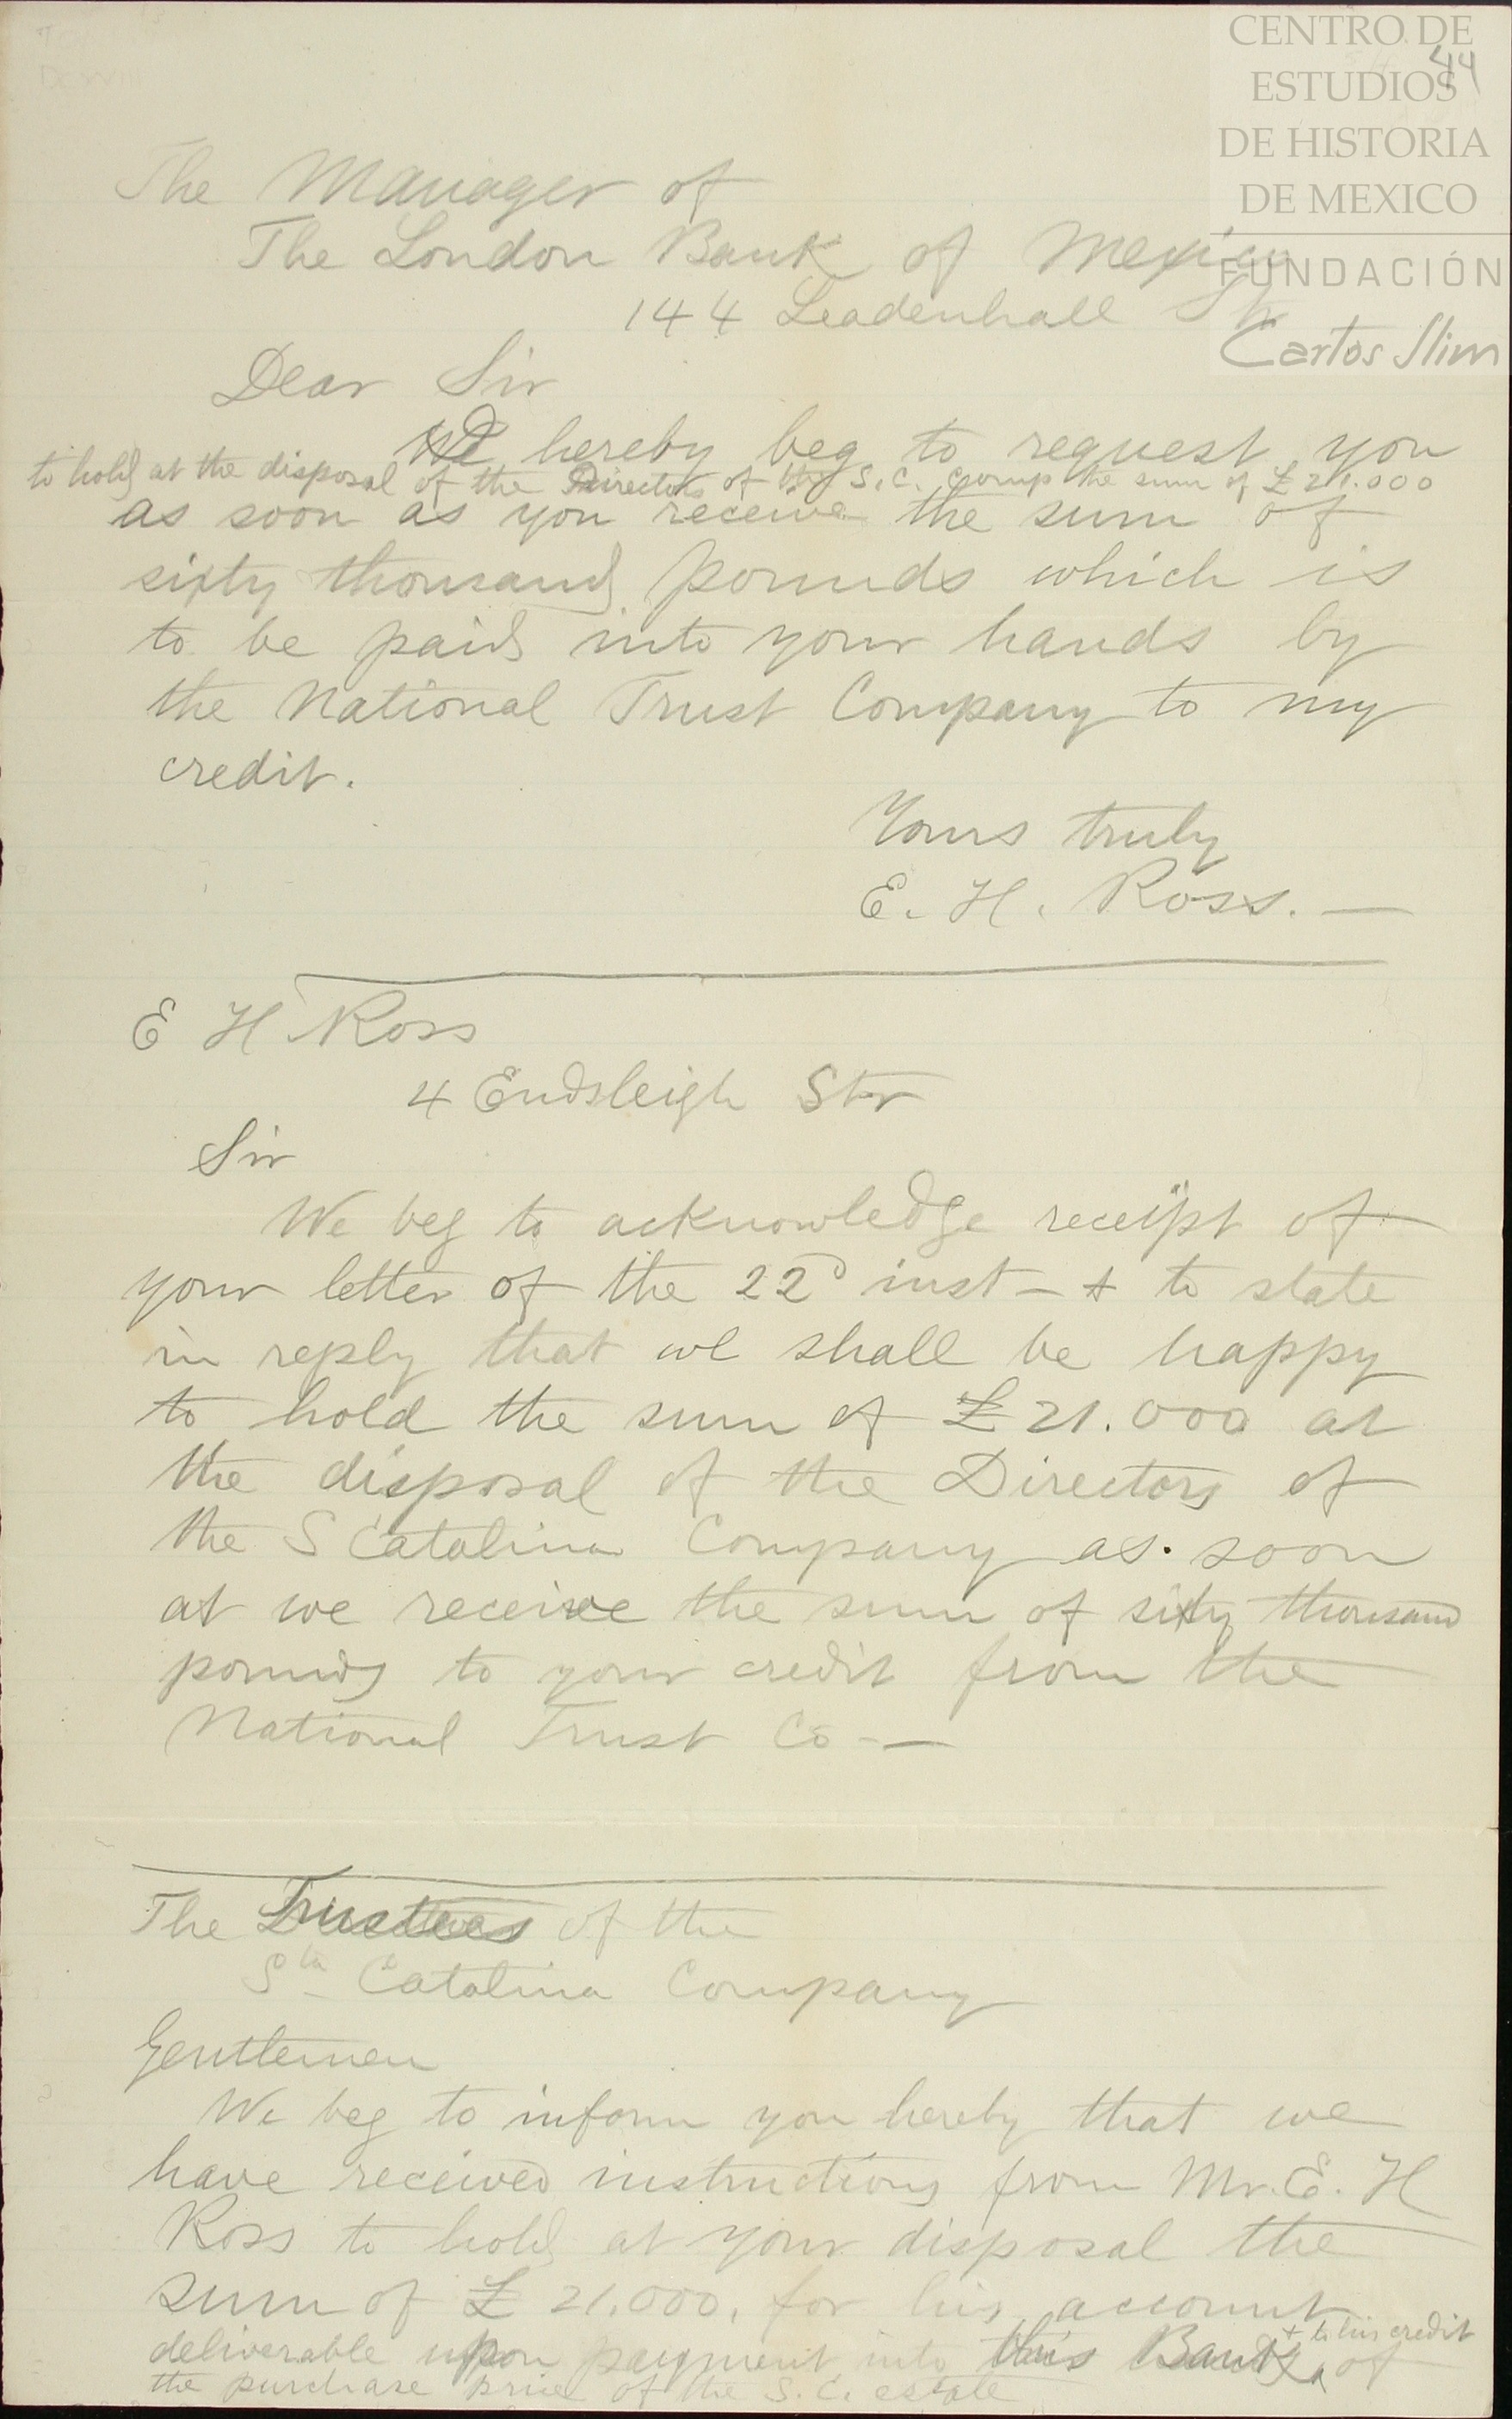 CENTRO DE
ESTUDIOS
DE HISTORIA
DE MEXICO
FUNDACIÓN
Carlos Slim
44
The Manager of
The London Bank of Mexico
144 Leadenhall St
Dear Sir
hereby beg to request you
to hold at the disposal of the Directors of the S. C. Comp the sum of £21.000
as soon as you receive the sum of
sixty thousand pounds which is
to be paid into your hands by
the National Trust Company to my
credit.
Yours truly
E. H. Ross. —
E H Ross
4 Endsleigh Str
Sir
We beg to acknowledge receipt of
your letter of the 22d inst - + to state
in reply that we shall be happy
to hold the sum of £21.000 at
the disposal of the Directors of
the S Catalina Company as soon
at we receive the sum of sixty thousand
pounds to your credit from the
National Trust Co —
The Trustees of the
Sta Catalina Company
Gentlemen
We beg to inform you hereby that we
have received instructions from Mr. E. H
Ross to hold at your disposal the
sum of £ 21.000. for his account
deliverable upon payment into this Bank + to his credit of
the purchase price of the S. C. estate